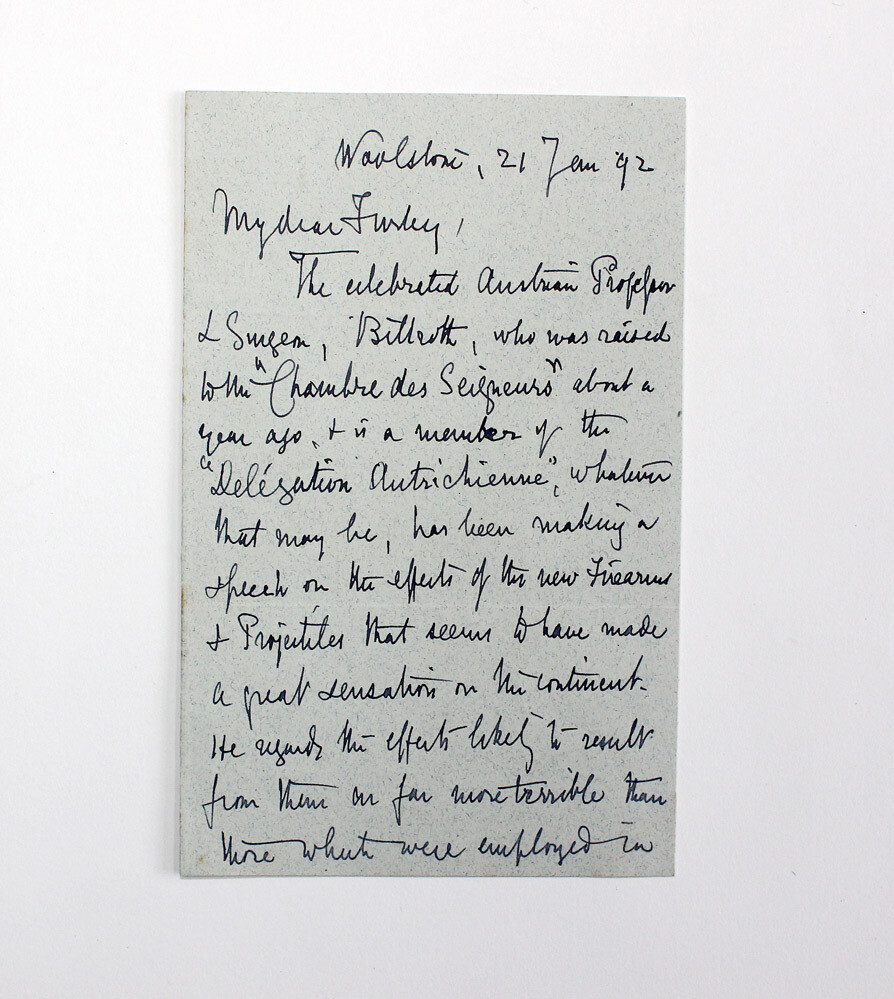 Woolston, 21 Jan '92
My dear Furley,
The celebrated Austrian Professor
& Surgeon, Billroth, who was raised
to the "Chambre des Seigneurs" about a
year ago, & is a member of the
"Delégation Autrichienne", whatever
that may be, has been making a
speech on the effects of the new Firearms
& Projectiles that seems to have made
a great sensation on the continent.
He regards the effects likely to result
from them as far more terrible than
those which were employed in